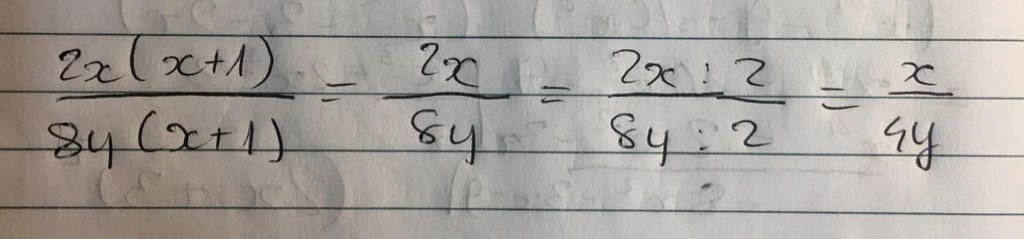 2x(x+1) / 8y(x+1) = 2x / 8y = 2x : 2 / 8y : 2 = x / 4y